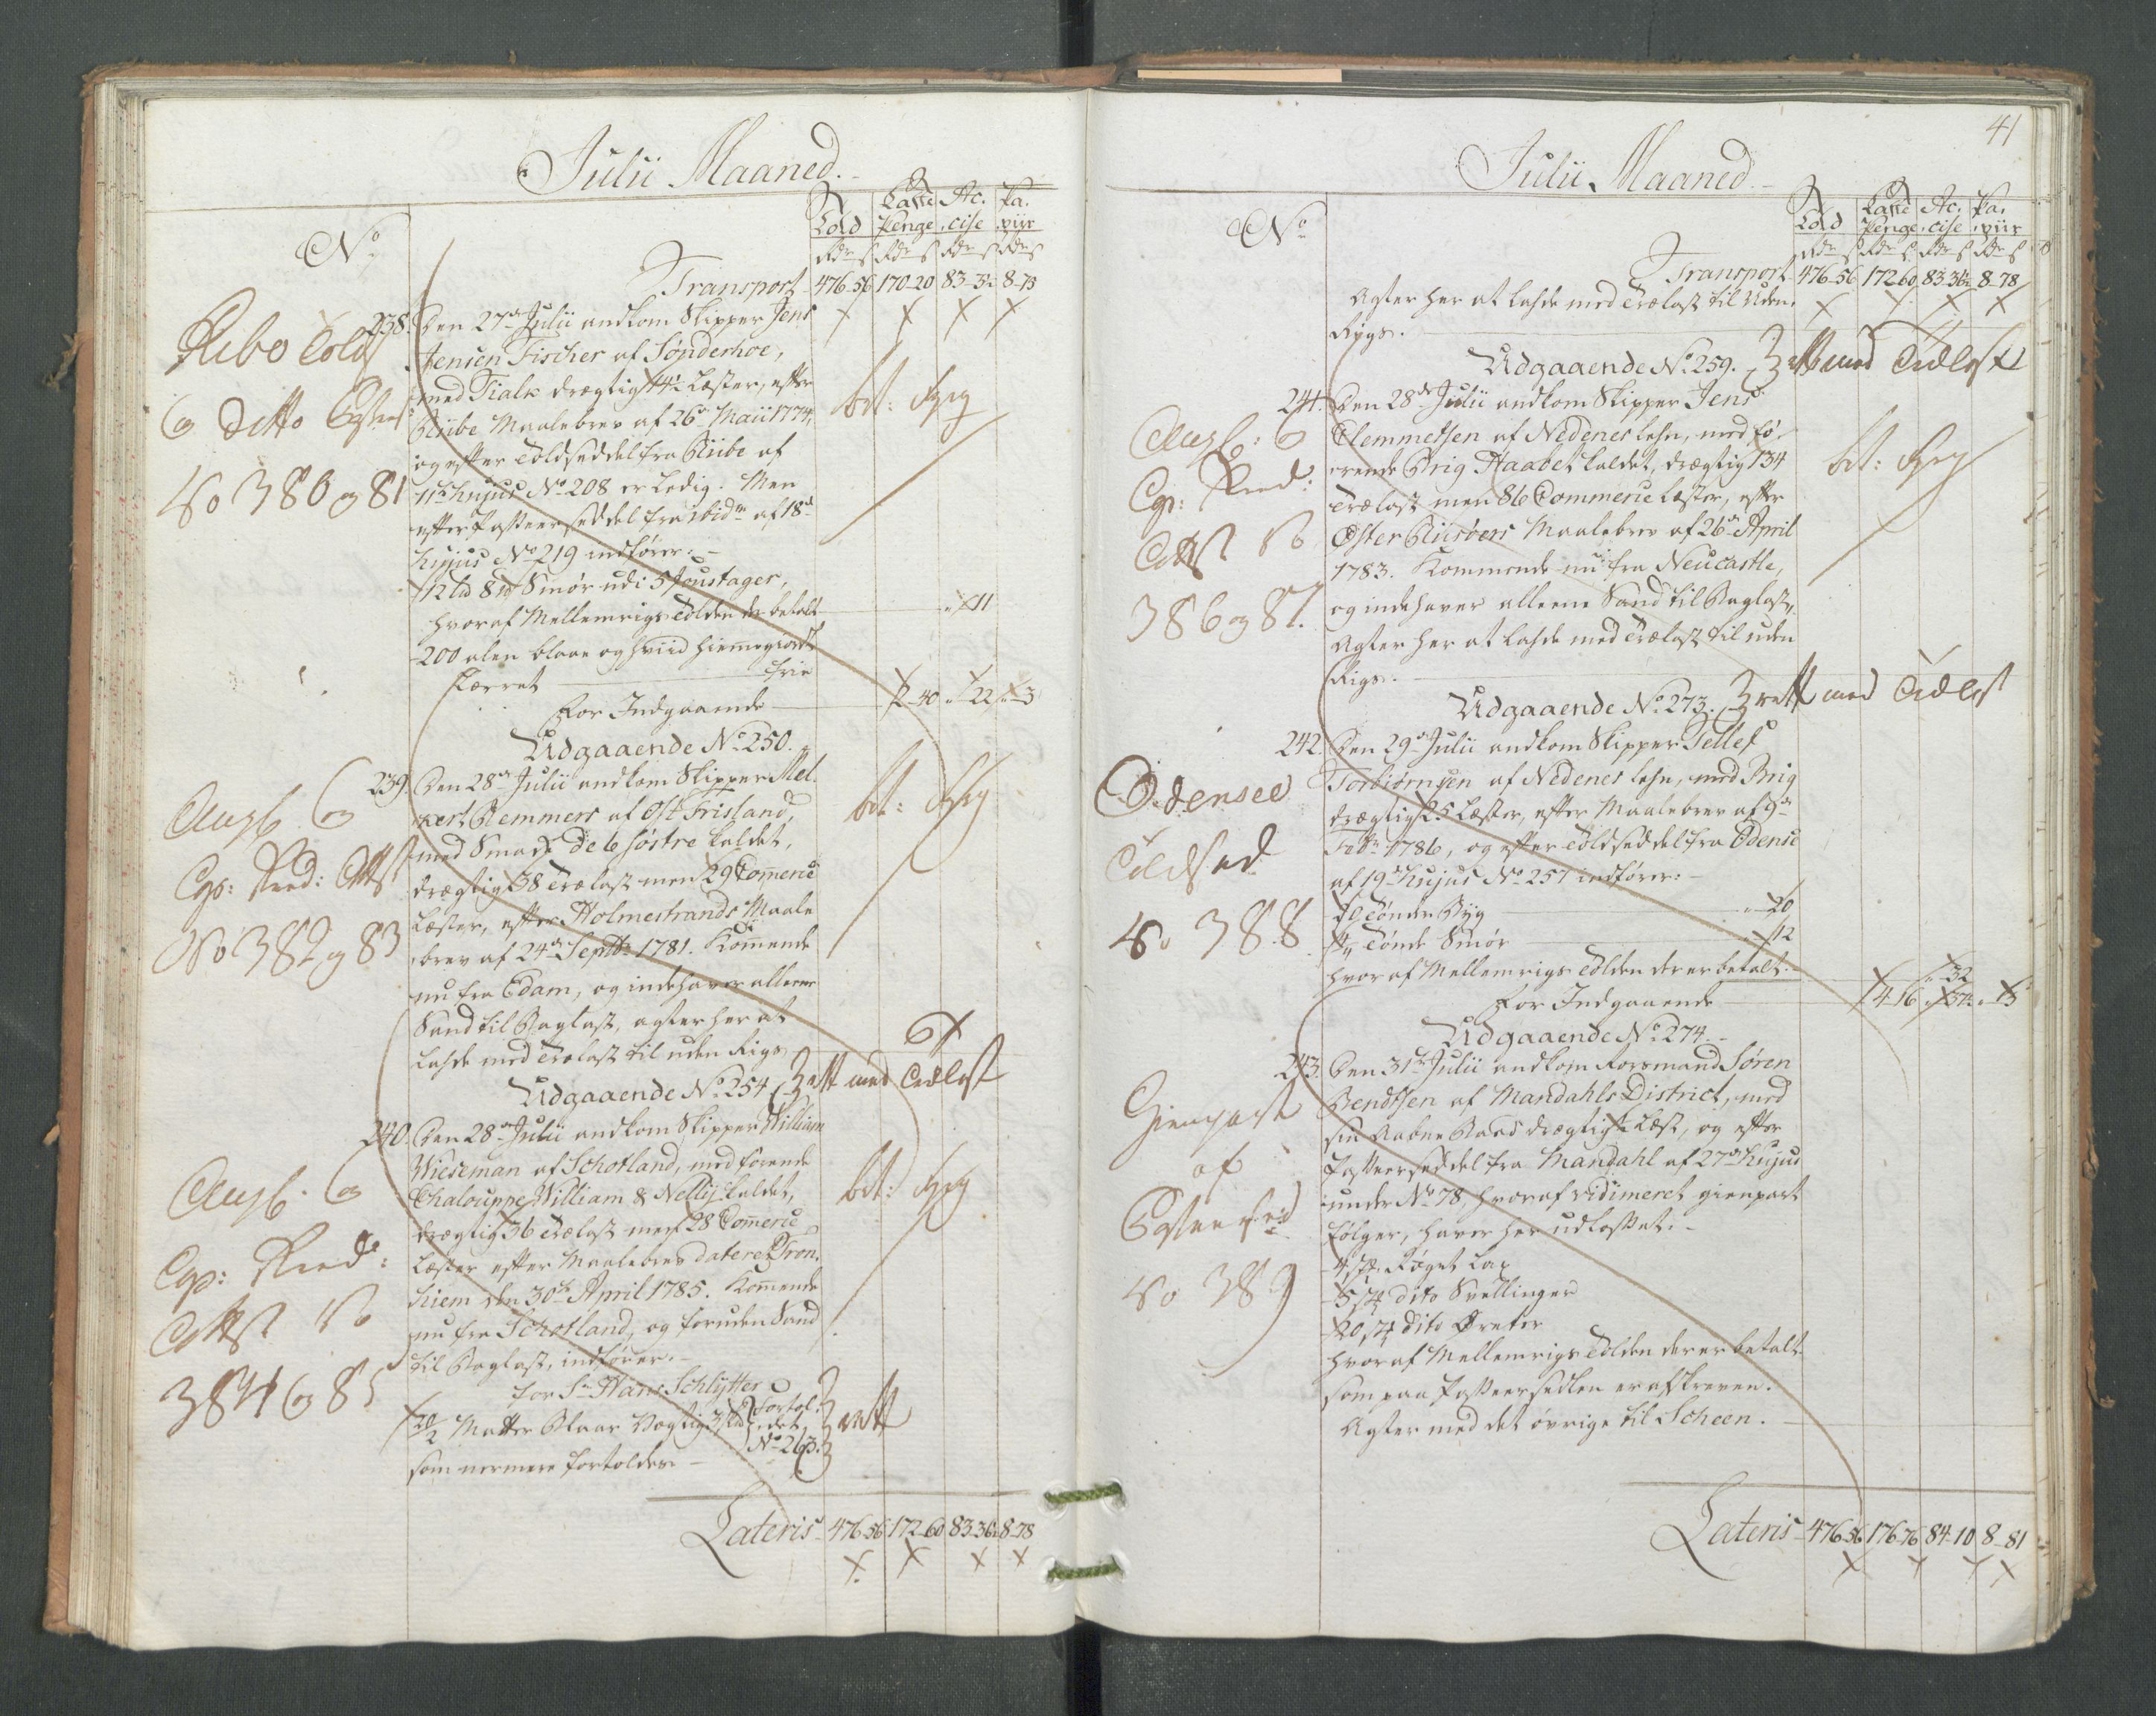 Julii Maaned.
No
Told
Laste Penge
Ac. cise
Pa. piir
Rdr s Rdr s Rdr s Rdr s
Transport 476-56 170-20 83-3½ 8-75
Ribe Told
238. Den 27de Julii ankom Skipper Jens
Jensen Fischer af Sønderhoe,
med Tialk drægtig 14½ Læster, efter
Riibe Maalebrev af 26de Maii 1774,
og efter Toldseddel fra Riibe af
11te hujus No 208 er Ledig. Men
efter Passeerseddel fra ibidm af 18de
hujus No 219 indfører:
12 Ld 8 Smør udi 5 Foustager,
hvoraf Mellemrigs Tolden er betalt
„-11
200 alen blaae og hviid hiemmegiordt
frie
For Indgaaende 2-40 „-22 „-3
Udgaaende No 250.
og ditto
No 380 og 81
bt:
239. Den 28de Julii ankom Skipper Mel-
kert Remmers af Ost Frisland,
med Smak De 6 Søstre kaldet,
drægtig 38 Trælast men 29 Comerce
Læster, efter Holmestrands Maale
brev af 24de Septbr 1781. Komende
nu fra Edam, og indehaver alleene
Sand til Baglast, agter her at
lahde med Trælast til uden Rigs
Udgaaende No 254
No 382 og 83
bt:
240. Den 28de Julii ankom Skipper William
Wieseman af Schotland, medførende
Chalouppe William & Nelly kaldet,
drægtig 36 Trælast men 28 Comerce
Læster efter Maalebrev dateret Tron-
hiem den 30te April 1785. Komende
nu fra Schotland, og foruden Sand
til Baglast, indfører.
for Sr Hans Schlytter
Matter Blaar Vægtig
fortol-
det
No 263.
som nermere fortoldes
384 og 85
bt:
Lateris 476-56 172-60 83-36½ 8-78
41
Julii Maaned
No
Told
Laste Penge
Ac. cise
Pa. piir
Rdr s Rdr s Rdr s Rdr s
Transport 476-56 172-60 83-36½ 8-78
Agter her at lahde med Trælast til Uden-
Rigs.
Udgaaende No 259.
241. Den 28de Julii ankom Skipper Jens
Clemmetsen af Nedenes Lehn, medfø-
rende Brig Haabet kaldet, drægtig 134
Trælast men 86 Commerce Læster, efter
Øster Riisøers Maalebrev af 26de April
1783. Kommende nu fra Neucastle,
og indehaver alleene Sand til Baglast,
Agter her at lahde med Trælast til uden
Rigs.
Udgaaende No 273.
386 og 87.
bt:
242. Den 29de Julii ankom Skipper Tellef
Torbiørnsen af Nedenes Lehn, med Brig
drægtig 25 Læster, efter Maalebrev af 9de
Febr 1786, og efter Toldseddel fra Odense
af 19de hujus No 257 indfører:
Tønder Byg „-20
Tønde Smør „-12
hvoraf Mellemrigs Tolden der er betalt.
„-32
For Indgaaende 4-16
Udgaaende No 274.
Odensee
Toldsed
No 388
243. Den 31te Julii ankom Formand Søren
Bendtsen af Mandahls District, med
sin aabne Baad drægtig Læst, og efter
Passeerseddel fra Mandahl af 27de hujus
under No 78, hvoraf vidimeret gienpart
følger, haver her udlosset.
Røget Lax
dito Svellinger
20 dito Ørreter
hvoraf Mellemrigs Tolden der er betalt
som paa Passeersedlen er afskreven.
Agter med det øvrige til Scheen.
Gienpart
af
No 389
Lateris 476-56 176-76 84-10 8-81